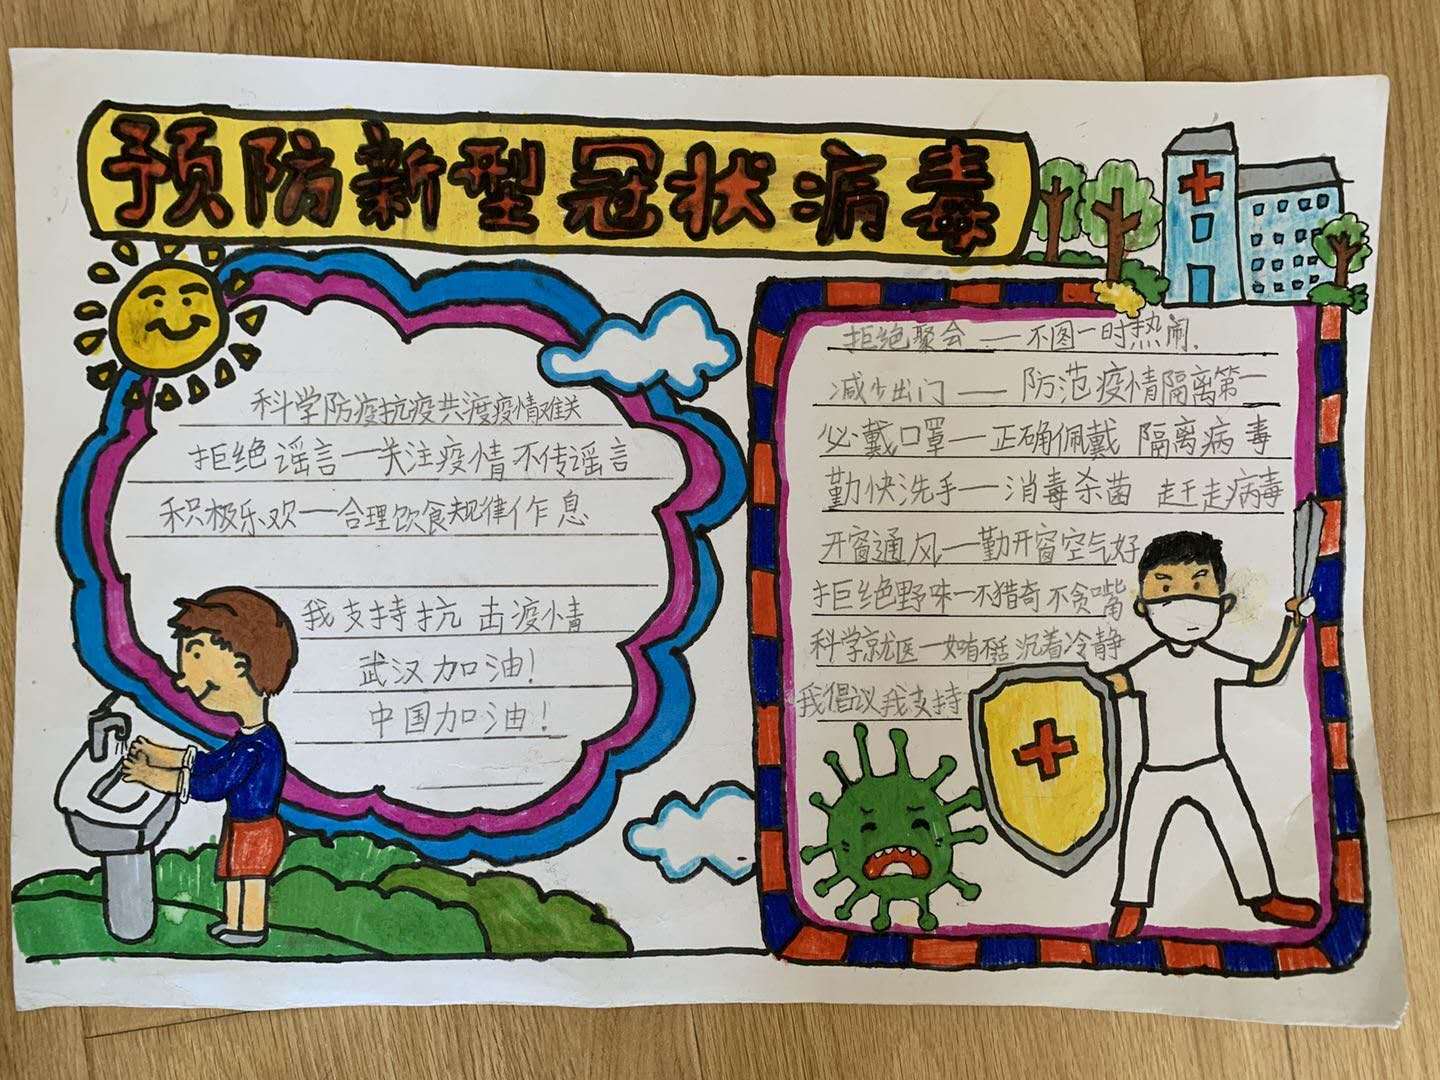 预防新型冠状病毒
科学防疫抗疫共渡疫情难关
拒绝谣言一关注疫情不传谣言
积极乐观一合理饮食规律作息
我支持抗击疫情
武汉加油!
中国加油!
拒绝聚会——不图一时热闹.
减少出门——防范疫情隔离第一
必戴口罩—正确佩戴 隔离病毒
勤快洗手—消毒杀菌 赶走病毒
开窗通风—勤开窗空气好
拒绝野味—不猎奇不贪嘴
科学就医—如有 沉着冷静
我倡议我支持